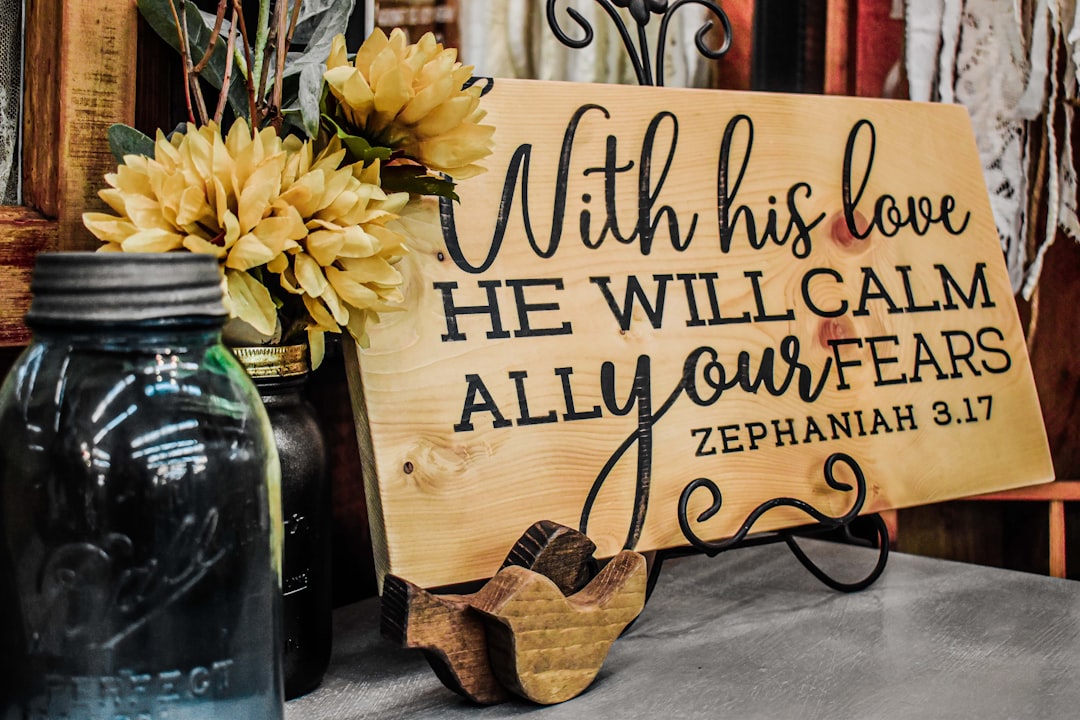 With his love
HE WILL CALM
ALL your FEARS
ZEPHANIAH 3.17
Ball
PERFECT